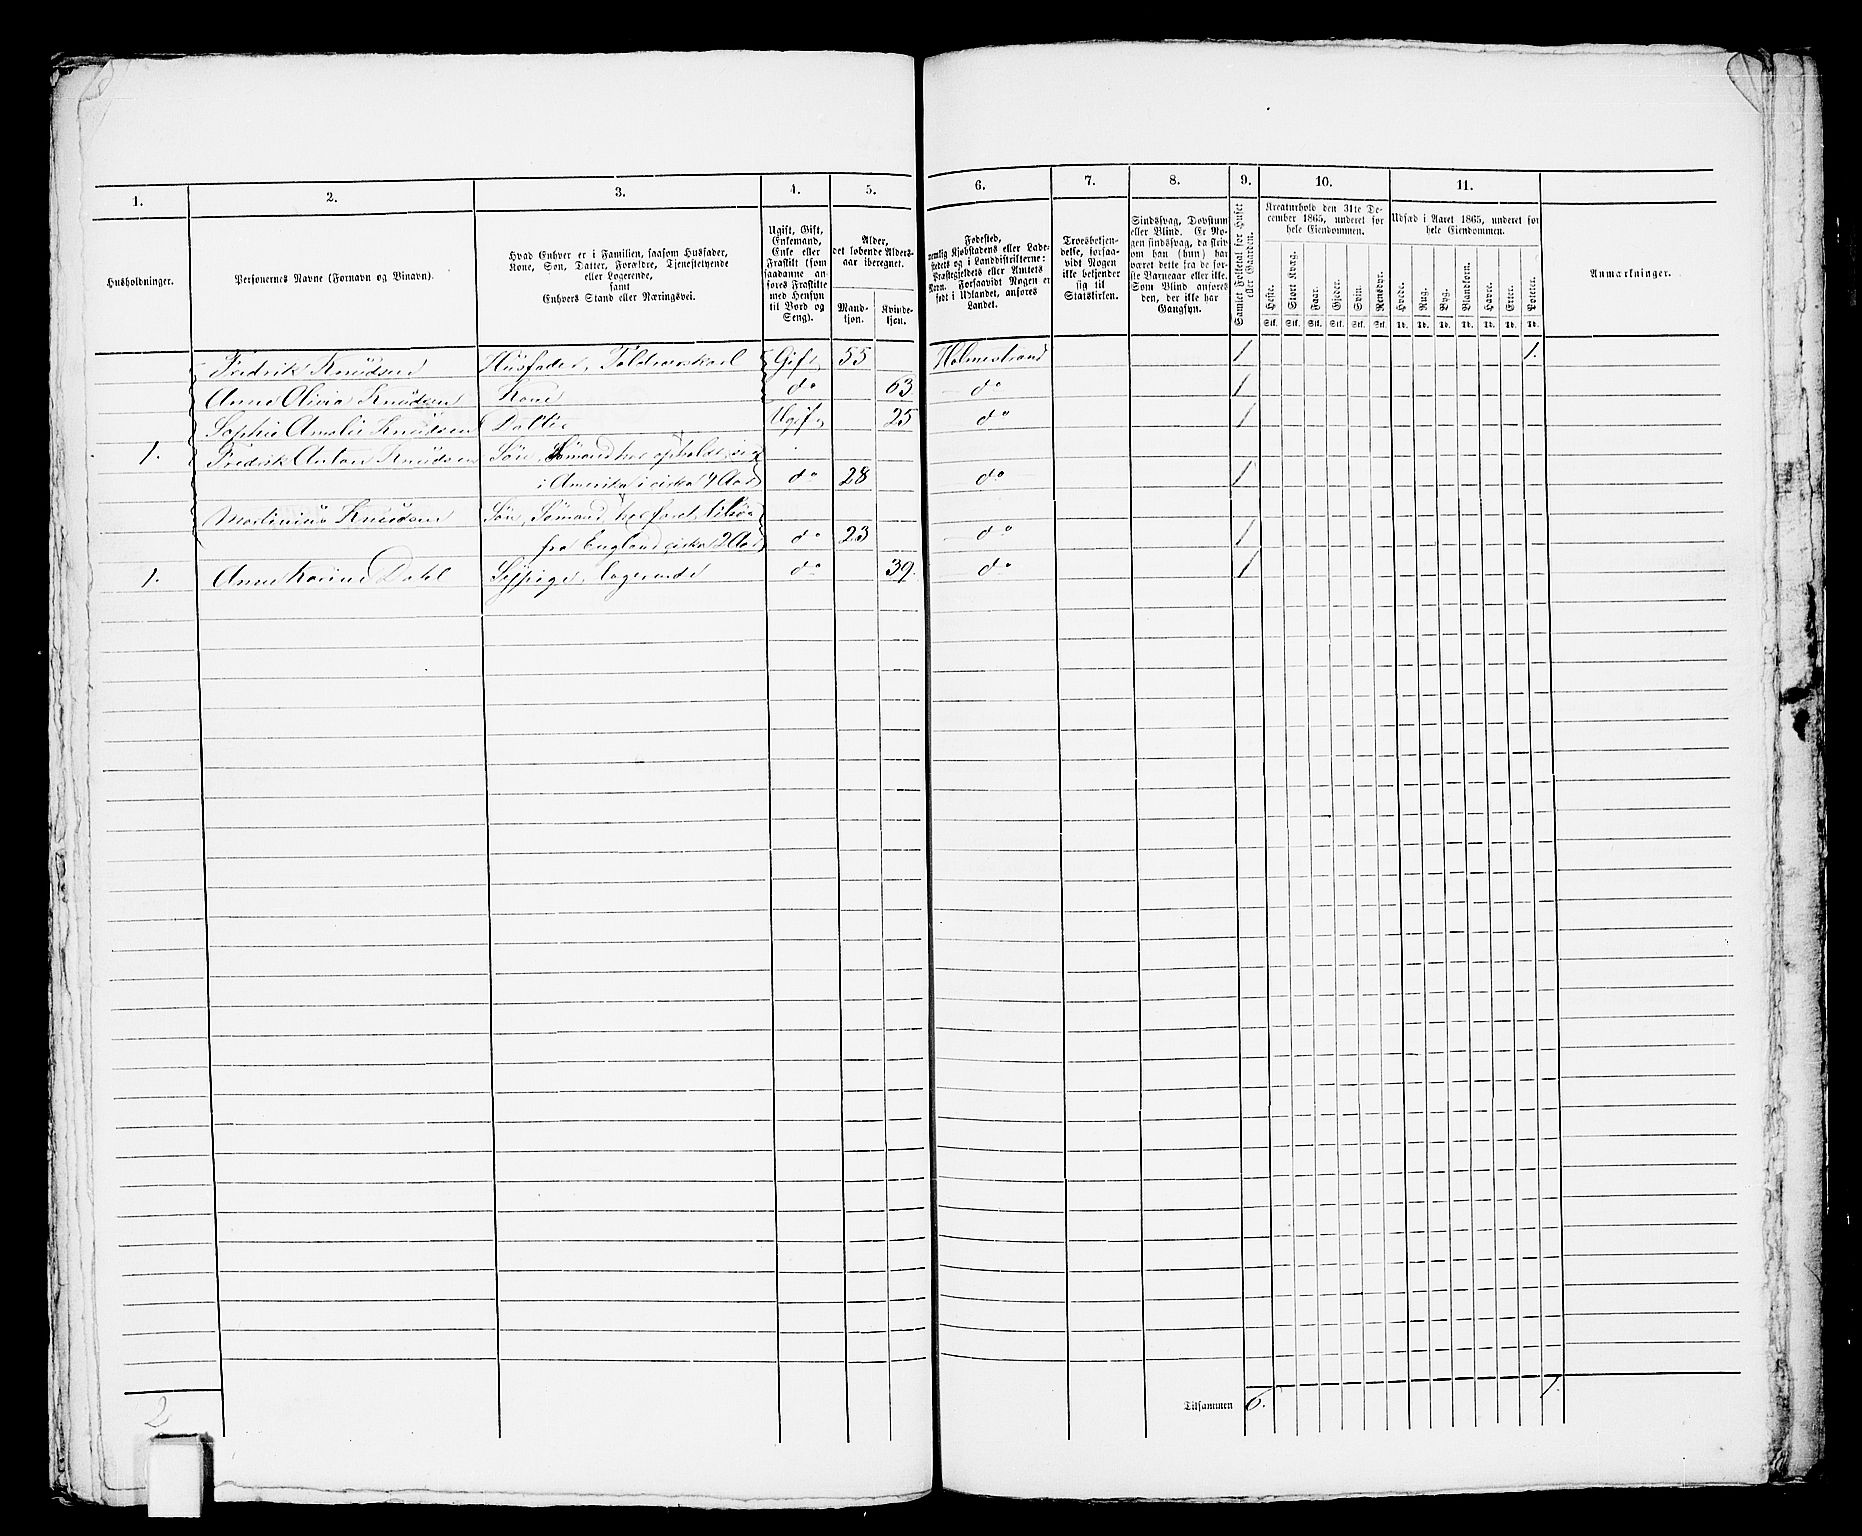 1. 2. 3. 4. 5. 6. 7. 8. 9. 10. 11.
Husholdninger.
Personernes Navne (Fornavn og Tilnavn).
Hvad Enhver er i Familien, saasom Husfader,
Kone, Søn, Datter, Forældre, Tjenestetyende
eller Logerende,
samt
Enhvers Stand eller Næringsvei.
Ugift, Gift,
Enkemand,
Enke eller
Fraskilt (som
saadanne an-
føres Fraskilte
med Hensyn
til Bord og
Seng).
Alder,
det løbende Alders-
aar iberegnet.
Mand-
kjøn.
Kvinde-
kjøn.
Fødested,
nemlig Kjøbstadens eller Lade-
stedets og i Landdistrikterne:
Præstegjeldets eller Amtets
Navn. Forsaavidt Nogen er
født i Udlandet, anføres
Landet.
Troesbekjen-
delse, forsaa-
vidt Nogen
ikke bekjender
sig til
Statskirken.
Sindssvag, Døvstum
eller Blind. Er No-
gen sindssvag, da skriv
om han (hun) har
været dette fra de før-
ste Barneaar eller ikke.
Som Blind anføres
den, der ikke har
Gangsyn.
Samlet Folketal for Huset
eller Gaarden.
Kreaturhold den 31te De-
cember 1865, underet for
hele Eiendommen.
Heste. Stort Kvæg. Faar. Gjeder. Svin. Rensdyr.
Stk. Stk. Stk. Stk. Stk. Stk.
Udsæd i Aaret 1865, underet for
hele Eiendommen.
Hvede. Rug. Byg. Blandkorn. Havre. Erter. Poteter.
Td. Td. Td. Td. Td. Td. Td.
Anmærkninger.
Fredrik Knudsen Husfader, Toldroerskarl Gift 55 Holmestrand 1 1.
Anne Olivia Knudsen Kone do 63 do 1
Sophie Amalie Knudsen Datter Ugift 25 do 1
1. Fredrik Anton Knudsen Søn, Sømand har opholdt sig
i Amerika i cirka 4 Aar do 28 do 1
Martinius Knudsen Søn, Sømand har faret tilsøs
fra England cirka 2 Aar do 23 do 1
1. Anne Karine Dahl Sypige, logerende do 39. do 1
Tilsammen 6. 1.
2